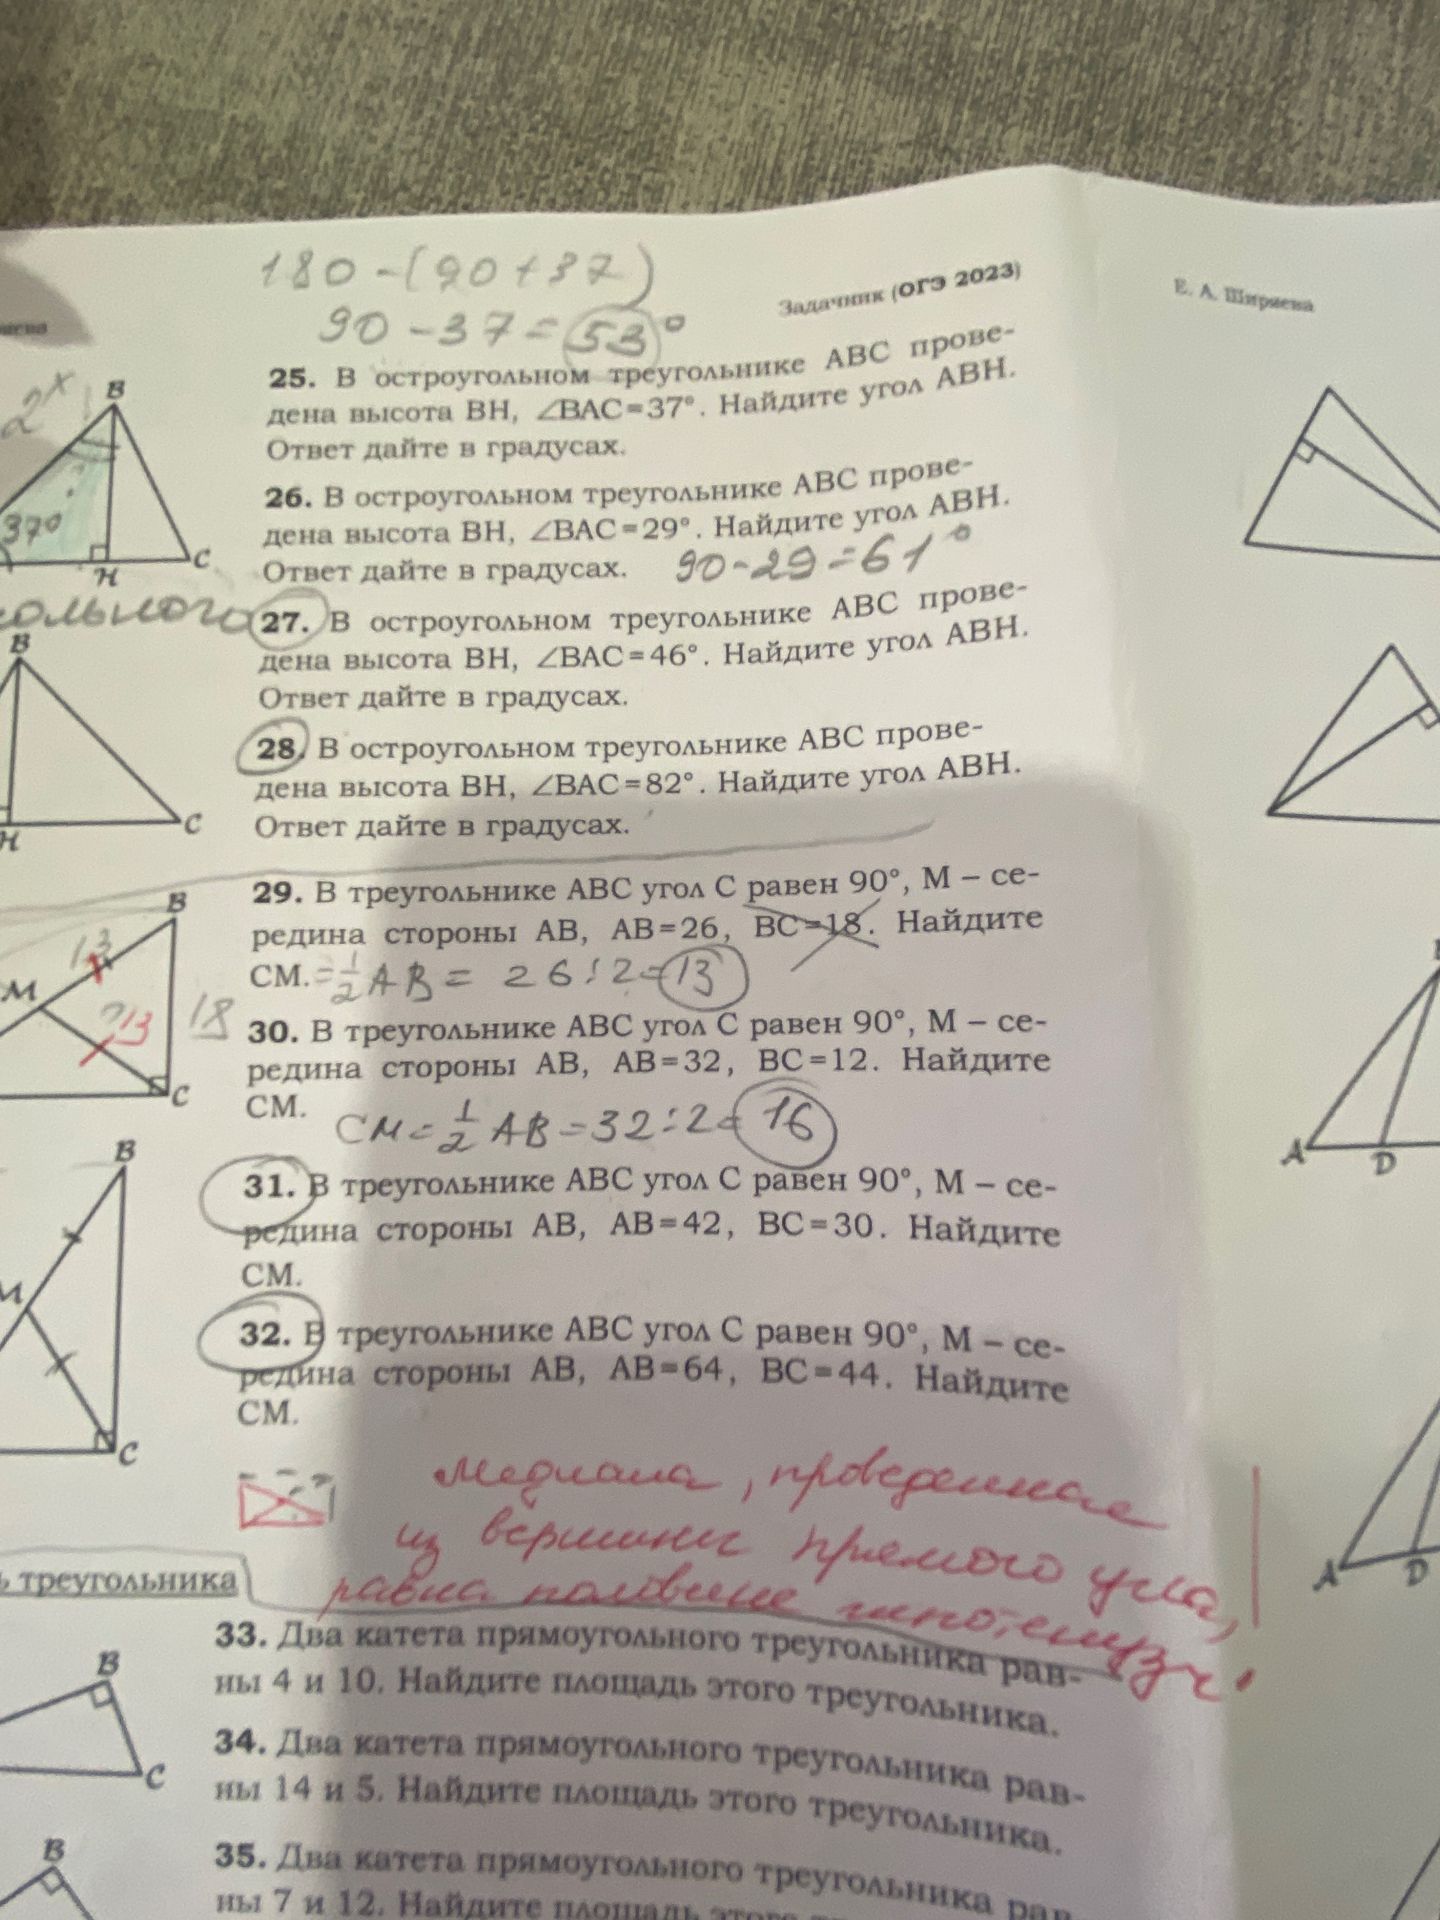 180 - (90 + 37)
90 - 37 = 53°
Задачник (ОГЭ 2023)
Е. А. Ширяева
2x
B
37°
H
C
25. В остроугольном треугольнике ABC прове-
дена высота BH, ∠BAC=37°. Найдите угол ABH.
Ответ дайте в градусах.
26. В остроугольном треугольнике ABC прове-
дена высота BH, ∠BAC=29°. Найдите угол ABH.
Ответ дайте в градусах. 90-29=61°
27. В остроугольном треугольнике ABC прове-
дена высота BH, ∠BAC=46°. Найдите угол ABH.
Ответ дайте в градусах.
B
H
C
28. В остроугольном треугольнике ABC прове-
дена высота BH, ∠BAC=82°. Найдите угол ABH.
Ответ дайте в градусах.
29. В треугольнике ABC угол C равен 90°, M – се-
редина стороны AB, AB=26, BC=18. Найдите
CM. = 1/2 AB = 26:2=13
B
13
M
?13
18
C
30. В треугольнике ABC угол C равен 90°, M – се-
редина стороны AB, AB=32, BC=12. Найдите
CM.
CM = 1/2 AB = 32÷2= 16
31. В треугольнике ABC угол C равен 90°, M – се-
редина стороны AB, AB=42, BC=30. Найдите
CM.
B
M
C
32. В треугольнике ABC угол C равен 90°, M – се-
редина стороны AB, AB=64, BC=44. Найдите
CM.
медиана, проведенная
из вершины прямого угла,
равна половине гипотенузы.
треугольника
33. Два катета прямоугольного треугольника рав-
ны 4 и 10. Найдите площадь этого треугольника.
B
C
34. Два катета прямоугольного треугольника рав-
ны 14 и 5. Найдите площадь этого треугольника.
B
35. Два катета прямоугольного треугольника рав-
ны 7 и 12. Найдите площадь этого
A
D
A
D